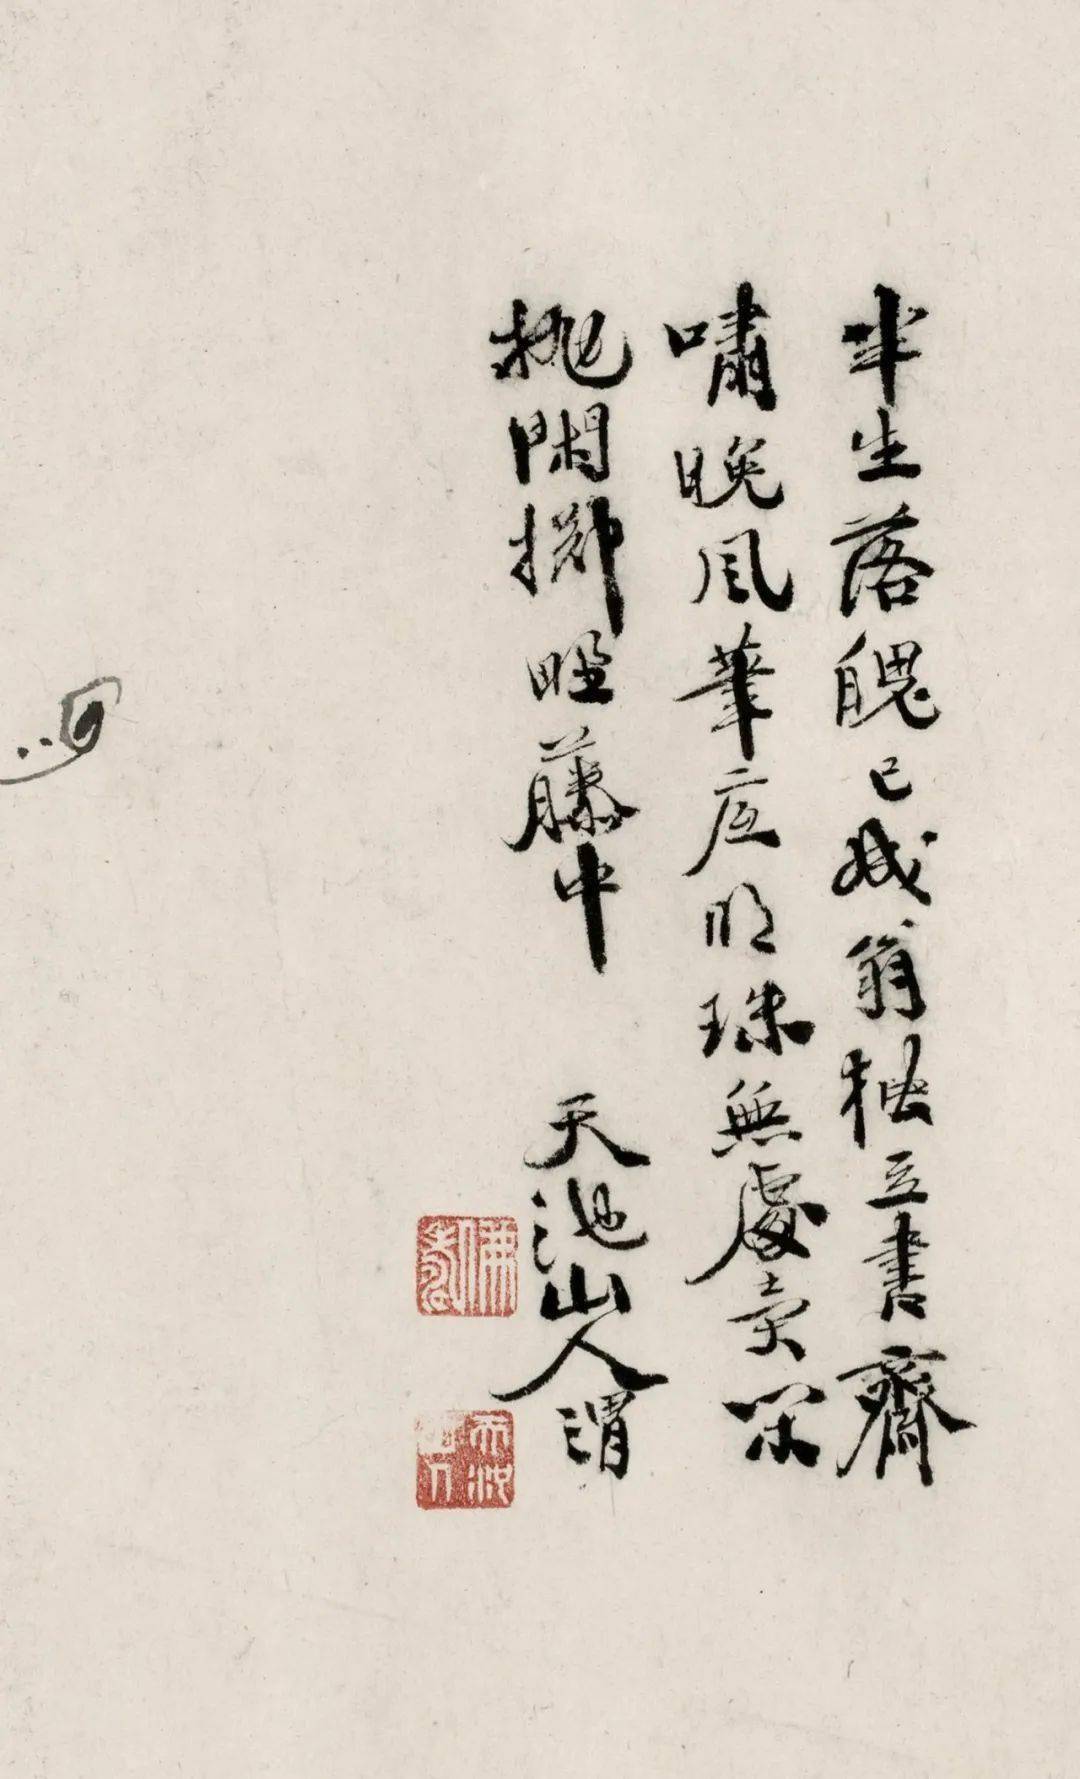 半生落魄已成翁獨立書齋
嘯晚風筆底明珠無處賣閑
抛閑擲野藤中
天池山人渭
佛壽
天池山人